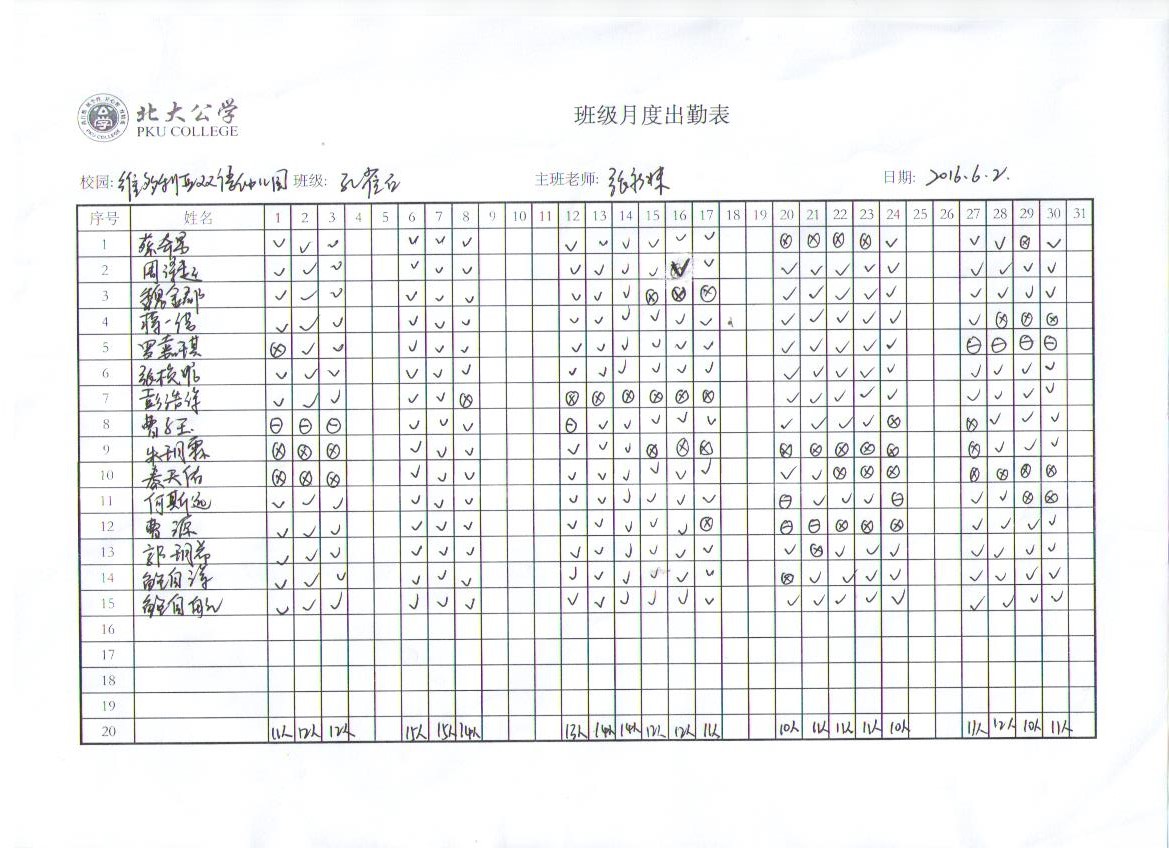 北大公学
PKU COLLEGE
班级月度出勤表
校园: 维多利亚双语幼儿园 班级: 孔雀石 主班老师: 日期: 2016.6.2.
序号 姓名 1 2 3 4 5 6 7 8 9 10 11 12 13 14 15 16 17 18 19 20 21 22 23 24 25 26 27 28 29 30 31
1 ✓ ✓ ✓ ✓ ✓ ✓ ✓ ✓ ✓ ✓ ✓ ✓ ⊗ ⊗ ⊗ ⊗ ✓ ✓ ✓ ⊗ ✓
2 ✓ ✓ ✓ ✓ ✓ ✓ ✓ ✓ ✓ ✓ ✓ ✓ ✓ ✓ ✓ ✓ ✓ ✓ ✓ ✓ ✓
3 ✓ ✓ ✓ ✓ ✓ ✓ ✓ ✓ ✓ ⊗ ⊗ ⊗ ✓ ✓ ✓ ✓ ✓ ✓ ✓ ✓ ✓
4 蒋一 ✓ ✓ ✓ ✓ ✓ ✓ ✓ ✓ ✓ ✓ ✓ ✓ ✓ ✓ ✓ ✓ ✓ ✓ ⊗ ⊗ ⊗
5 罗嘉琪 ⊗ ✓ ✓ ✓ ✓ ✓ ✓ ✓ ✓ ✓ ✓ ✓ ✓ ✓ ✓ ✓ ✓ ⊖ ⊖ ⊖ ⊖
6 ✓ ✓ ✓ ✓ ✓ ✓ ✓ ✓ ✓ ✓ ✓ ✓ ✓ ✓ ✓ ✓ ✓ ✓ ✓ ✓ ✓
7 彭浩 ✓ ✓ ✓ ✓ ✓ ⊗ ⊗ ⊗ ⊗ ⊗ ⊗ ⊗ ✓ ✓ ✓ ✓ ✓ ✓ ✓ ✓ ✓
8 ⊖ ⊖ ⊖ ✓ ✓ ✓ ⊖ ✓ ✓ ✓ ✓ ✓ ✓ ✓ ✓ ✓ ⊗ ⊗ ✓ ✓ ✓
9 朱玥霖 ⊗ ⊗ ⊗ ✓ ✓ ✓ ✓ ✓ ✓ ⊗ ⊗ ⊗ ⊗ ⊗ ⊗ ⊗ ⊗ ⊗ ✓ ✓ ✓
10 秦天佑 ⊗ ⊗ ⊗ ✓ ✓ ✓ ✓ ✓ ✓ ✓ ✓ ✓ ✓ ✓ ⊗ ⊗ ⊗ ⊗ ⊗ ⊗ ⊗
11 何斯远 ✓ ✓ ✓ ✓ ✓ ✓ ✓ ✓ ✓ ✓ ✓ ✓ ⊖ ✓ ✓ ✓ ⊖ ✓ ✓ ⊗ ⊗
12 曹源 ✓ ✓ ✓ ✓ ✓ ✓ ✓ ✓ ✓ ✓ ✓ ⊗ ⊖ ⊖ ⊗ ⊗ ⊗ ✓ ✓ ✓ ✓
13 郭玥希 ✓ ✓ ✓ ✓ ✓ ✓ ✓ ✓ ✓ ✓ ✓ ✓ ✓ ⊗ ✓ ✓ ✓ ✓ ✓ ✓ ✓
14 ✓ ✓ ✓ ✓ ✓ ✓ ✓ ✓ ✓ ✓ ✓ ✓ ⊗ ✓ ✓ ✓ ✓ ✓ ✓ ✓ ✓
15 ✓ ✓ ✓ ✓ ✓ ✓ ✓ ✓ ✓ ✓ ✓ ✓ ✓ ✓ ✓ ✓ ✓ ✓ ✓ ✓ ✓
16
17
18
19
20 11人 12人 12人 15人 15人 14人 13人 14人 14人 12人 12人 11人 10人 11人 11人 11人 10人 11人 12人 10人 11人